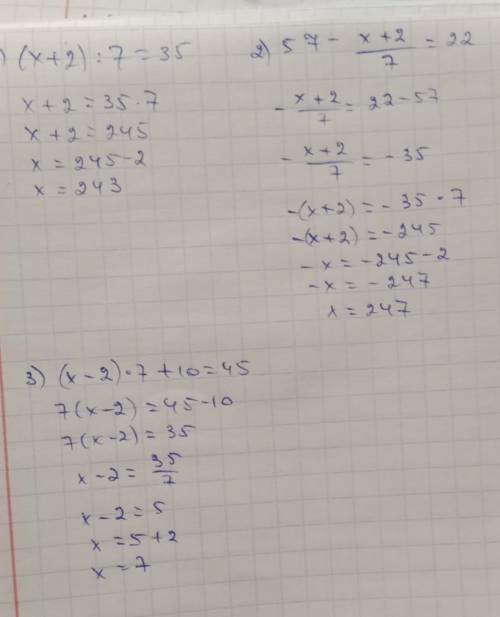 ) (x+2) : 7 = 35
x + 2 = 35 · 7
x + 2 = 245
x = 245 - 2
x = 243
2) 57 - \frac{x+2}{7} = 22
- \frac{x+2}{7} = 22 - 57
- \frac{x+2}{7} = - 35
-(x+2) = - 35 · 7
-(x+2) = - 245
- x = - 245 - 2
- x = - 247
x = 247
3) (x - 2) · 7 + 10 = 45
7(x - 2) = 45 - 10
7(x - 2) = 35
x - 2 = \frac{35}{7}
x - 2 = 5
x = 5 + 2
x = 7